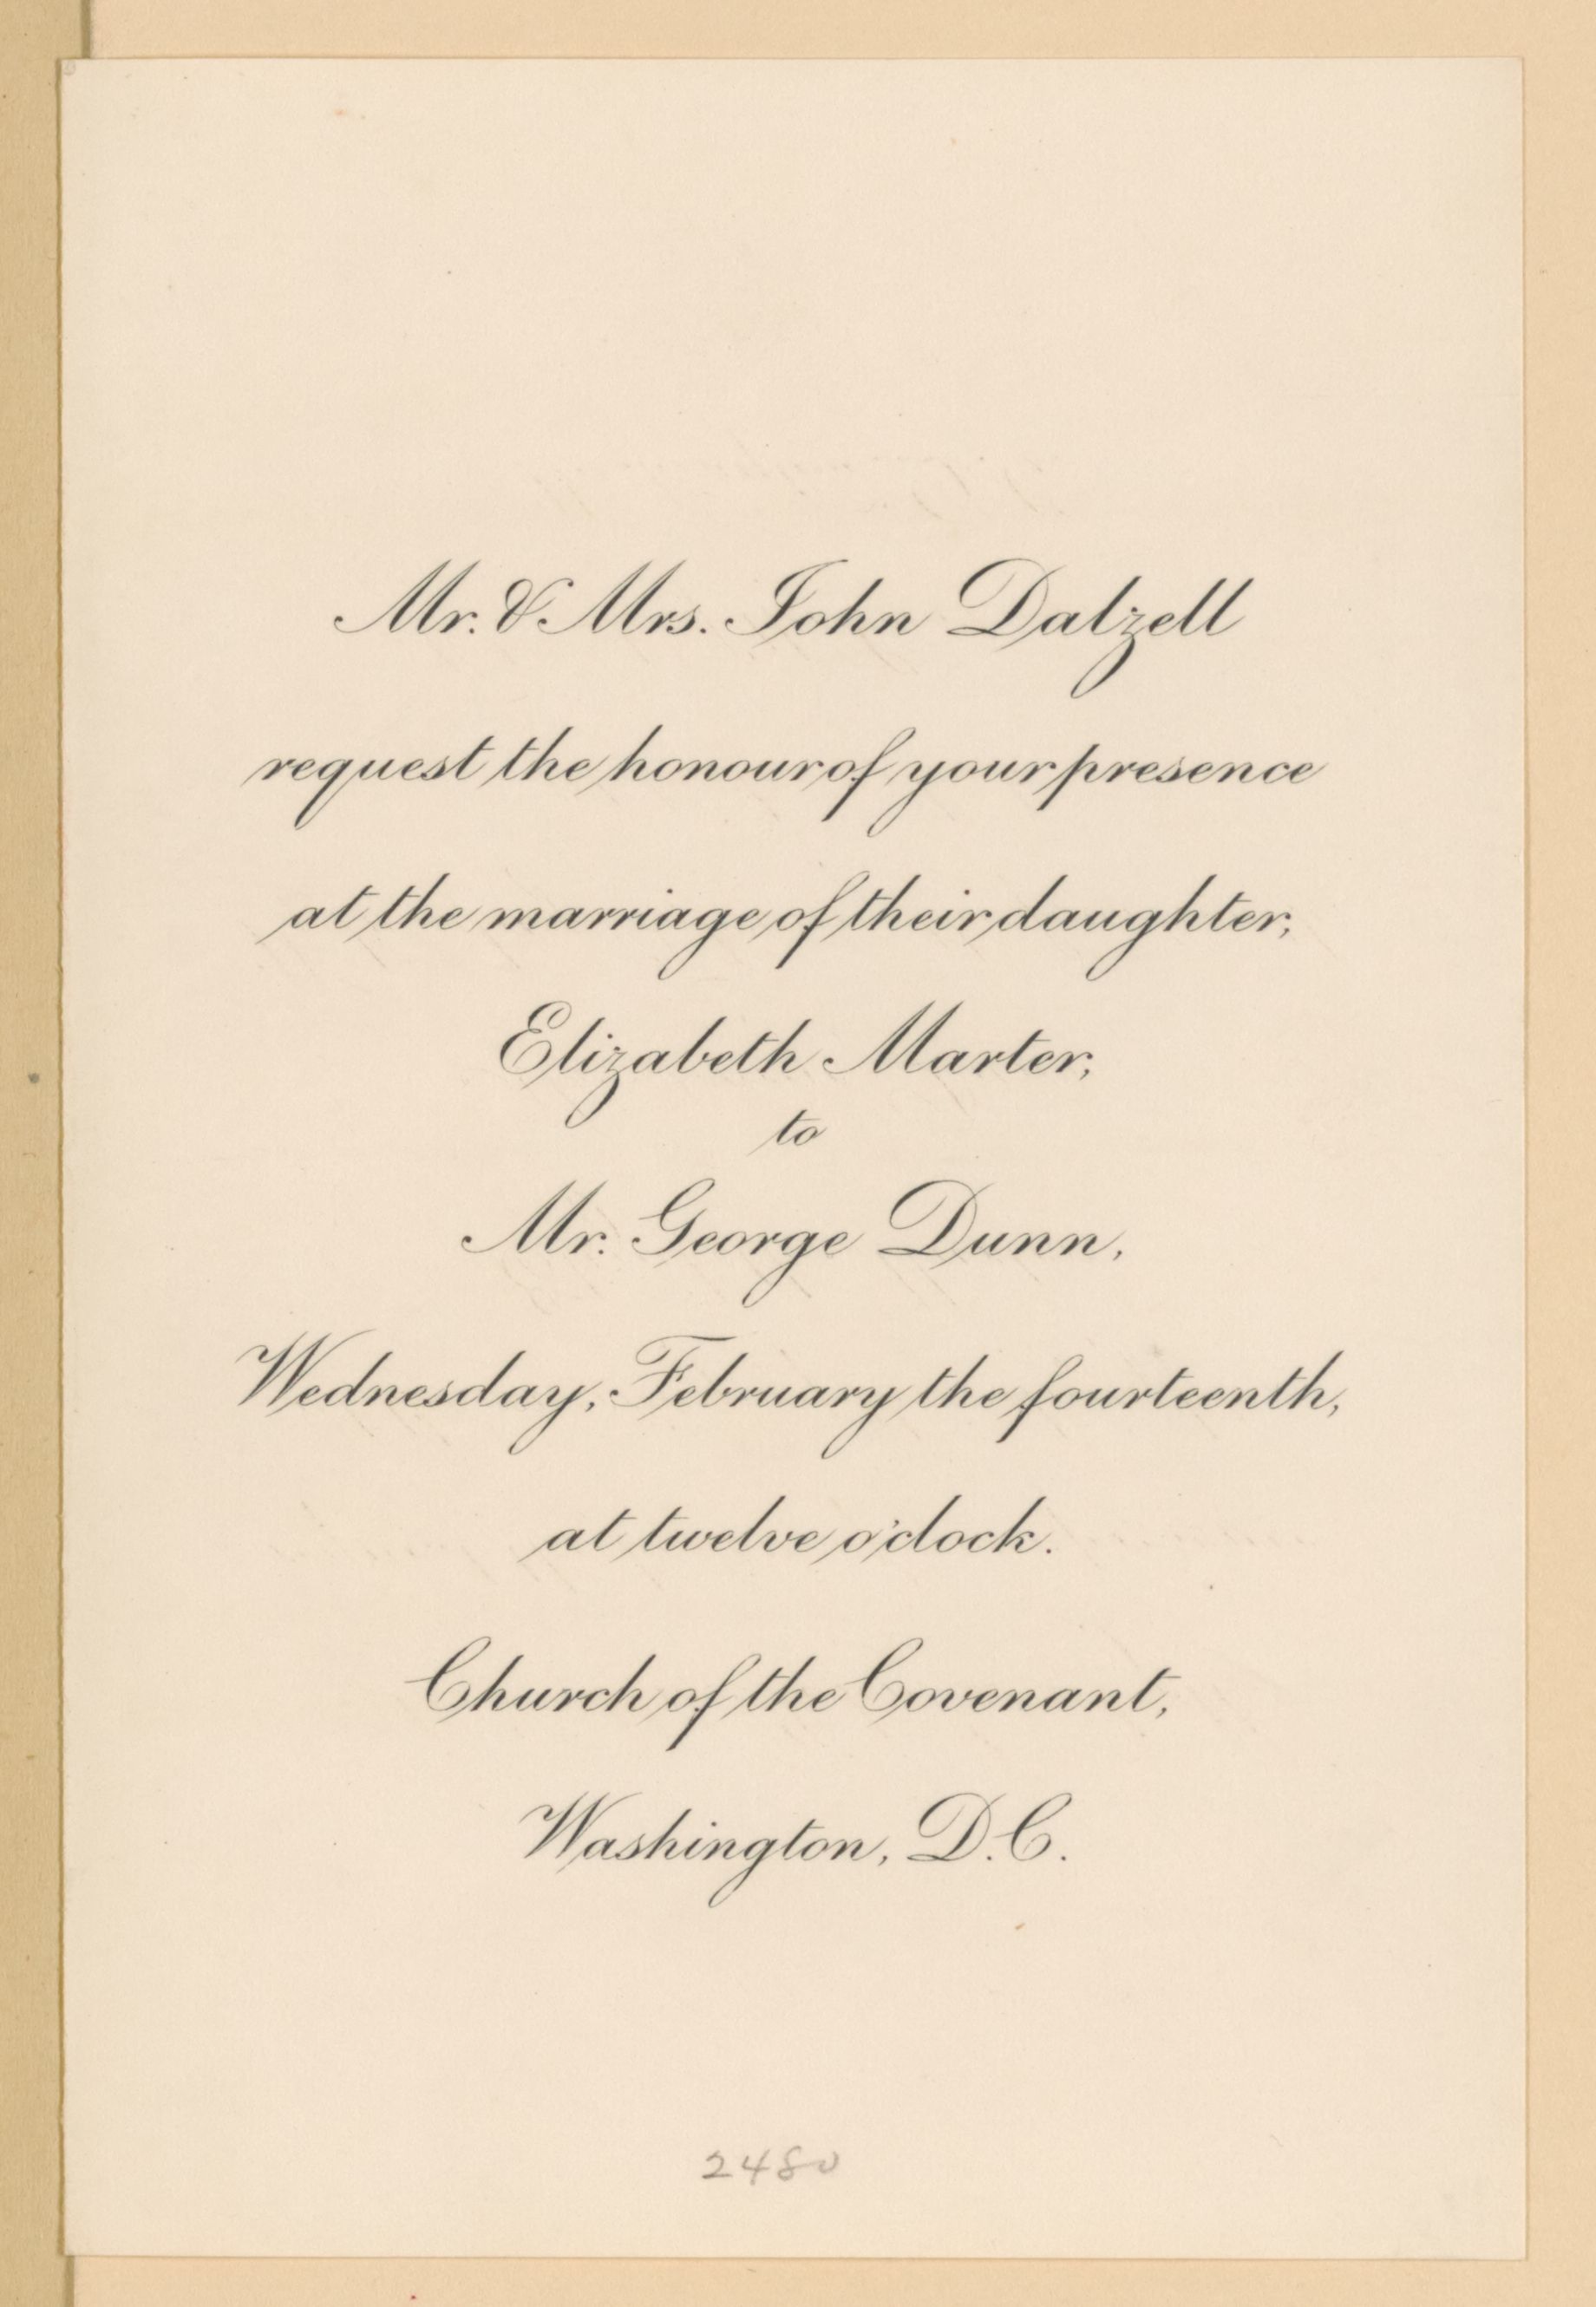 Mr. & Mrs. John Dalzell
request the honour of your presence
at the marriage of their daughter,
Elizabeth Marter,
to
Mr. George Dunn,
Wednesday, February the fourteenth,
at twelve o'clock.
Church of the Covenant,
Washington, D.C.
2480